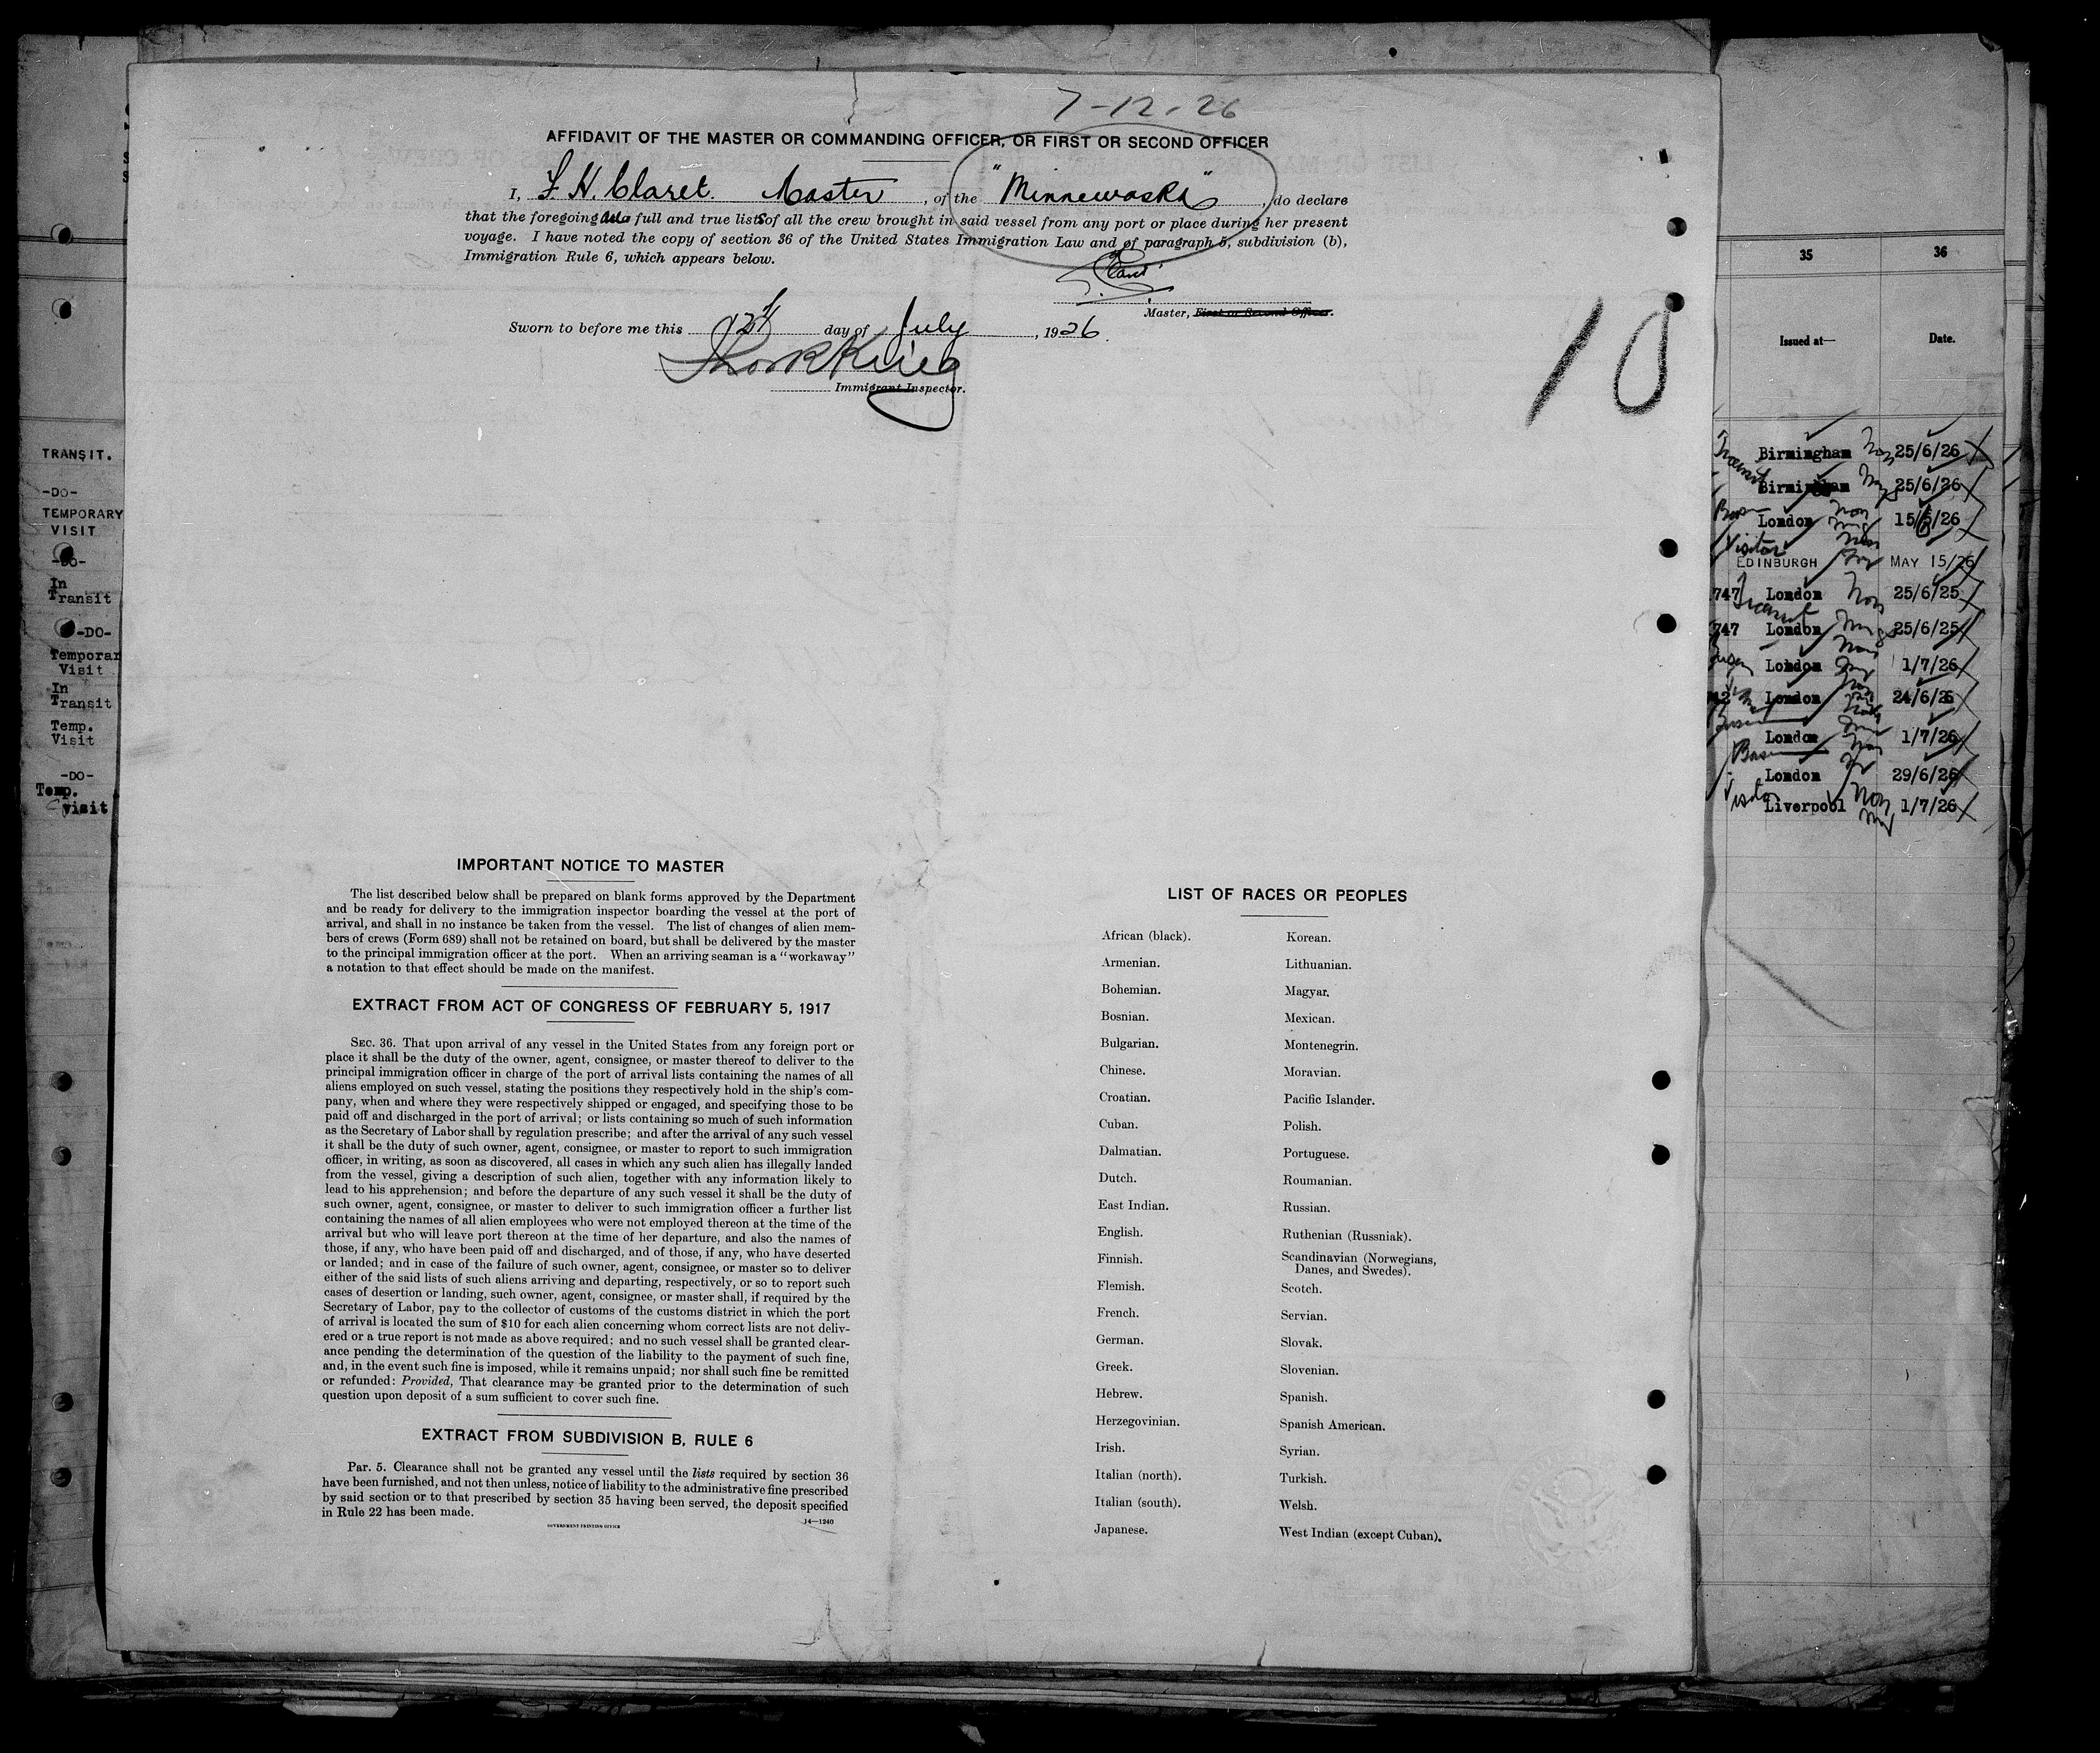 7-12-26
AFFIDAVIT OF THE MASTER OR COMMANDING OFFICER, OR FIRST OR SECOND OFFICER
I, F. H. Claret. Master, of the "Minnewaska", do declare
that the foregoing are full and true lists of all the crew brought in said vessel from any port or place during her present
voyage. I have noted the copy of section 36 of the United States Immigration Law and of paragraph 5, subdivision (b),
Immigration Rule 6, which appears below.
Master, First or Second Officer.
Sworn to before me this 12th day of July, 1926.
Immigrant Inspector.
10
IMPORTANT NOTICE TO MASTER
The list described below shall be prepared on blank forms approved by the Department
and be ready for delivery to the immigration inspector boarding the vessel at the port of
arrival, and shall in no instance be taken from the vessel. The list of changes of alien mem-
bers of crews (Form 689) shall not be retained on board, but shall be delivered by the master
to the principal immigration officer at the port. When an arriving seaman is a "workaway"
a notation to that effect should be made on the manifest.
EXTRACT FROM ACT OF CONGRESS OF FEBRUARY 5, 1917
SEC. 36. That upon arrival of any vessel in the United States from any foreign port or
place it shall be the duty of the owner, agent, consignee, or master thereof to deliver to the
principal immigration officer in charge of the port of arrival lists containing the names of all
aliens employed on such vessel, stating the positions they respectively hold in the ship's com-
pany, when and where they were respectively shipped or engaged, and specifying those to be
paid off and discharged in the port of arrival; or lists containing so much of such information
as the Secretary of Labor shall by regulation prescribe; and after the arrival of any such vessel
it shall be the duty of such owner, agent, consignee, or master to report to such immigration
officer, in writing, as soon as discovered, all cases in which any such alien has illegally landed
from the vessel, giving a description of such alien, together with any information likely to
lead to his apprehension; and before the departure of any such vessel it shall be the duty of
such owner, agent, consignee, or master to deliver to such immigration officer a further list
containing the names of all alien employees who were not employed thereon at the time of the
arrival but who will leave port thereon at the time of her departure, and also the names of
those, if any, who have been paid off and discharged, and of those, if any, who have deserted
or landed; and in case of the failure of such owner, agent, consignee, or master so to deliver
either of the said lists of such aliens arriving and departing, respectively, or so to report such
cases of desertion or landing, such owner, agent, consignee, or master shall, if required by the
Secretary of Labor, pay to the collector of customs of the customs district in which the port
of arrival is located the sum of $10 for each alien concerning whom correct lists are not deliv-
ered or a true report is not made as above required; and no such vessel shall be granted clear-
ance pending the determination of the question of the liability to the payment of such fine,
and, in the event such fine is imposed, while it remains unpaid; nor shall such fine be remitted
or refunded: Provided, That clearance may be granted prior to the determination of such
question upon deposit of a sum sufficient to cover such fine.
EXTRACT FROM SUBDIVISION B, RULE 6
Par. 5. Clearance shall not be granted any vessel until the lists required by section 36
have been furnished, and not then unless, notice of liability to the administrative fine prescribed
by said section or to that prescribed by section 35 having been served, the deposit specified
in Rule 22 has been made.
14—1240
GOVERNMENT PRINTING OFFICE
LIST OF RACES OR PEOPLES
African (black).
Armenian.
Bohemian.
Bosnian.
Bulgarian.
Chinese.
Croatian.
Cuban.
Dalmatian.
Dutch.
East Indian.
English.
Finnish.
Flemish.
French.
German.
Greek.
Hebrew.
Herzegovinian.
Irish.
Italian (north).
Italian (south).
Japanese.
Korean.
Lithuanian.
Magyar.
Mexican.
Montenegrin.
Moravian.
Pacific Islander.
Polish.
Portuguese.
Roumanian.
Russian.
Ruthenian (Russniak).
Scandinavian (Norwegians,
Danes, and Swedes).
Scotch.
Servian.
Slovak.
Slovenian.
Spanish.
Spanish American.
Syrian.
Turkish.
Welsh.
West Indian (except Cuban).
TRANSIT.
-DO-
TEMPORARY
VISIT
-DO-
In
Transit
-DO-
Temporar
Visit
In
Transit
Temp.
Visit
-DO-
Temp.
visit
35 36
Issued at— Date.
Birmingham 25/6/26
Birmingham 25/6/26
London 15/6/26
Visitor
EDINBURGH MAY 15/26
747 London 25/6/25
747 London 25/6/25
London 1/7/26
London 24/6/26
London 1/7/26
London 29/6/26
Liverpool 1/7/26